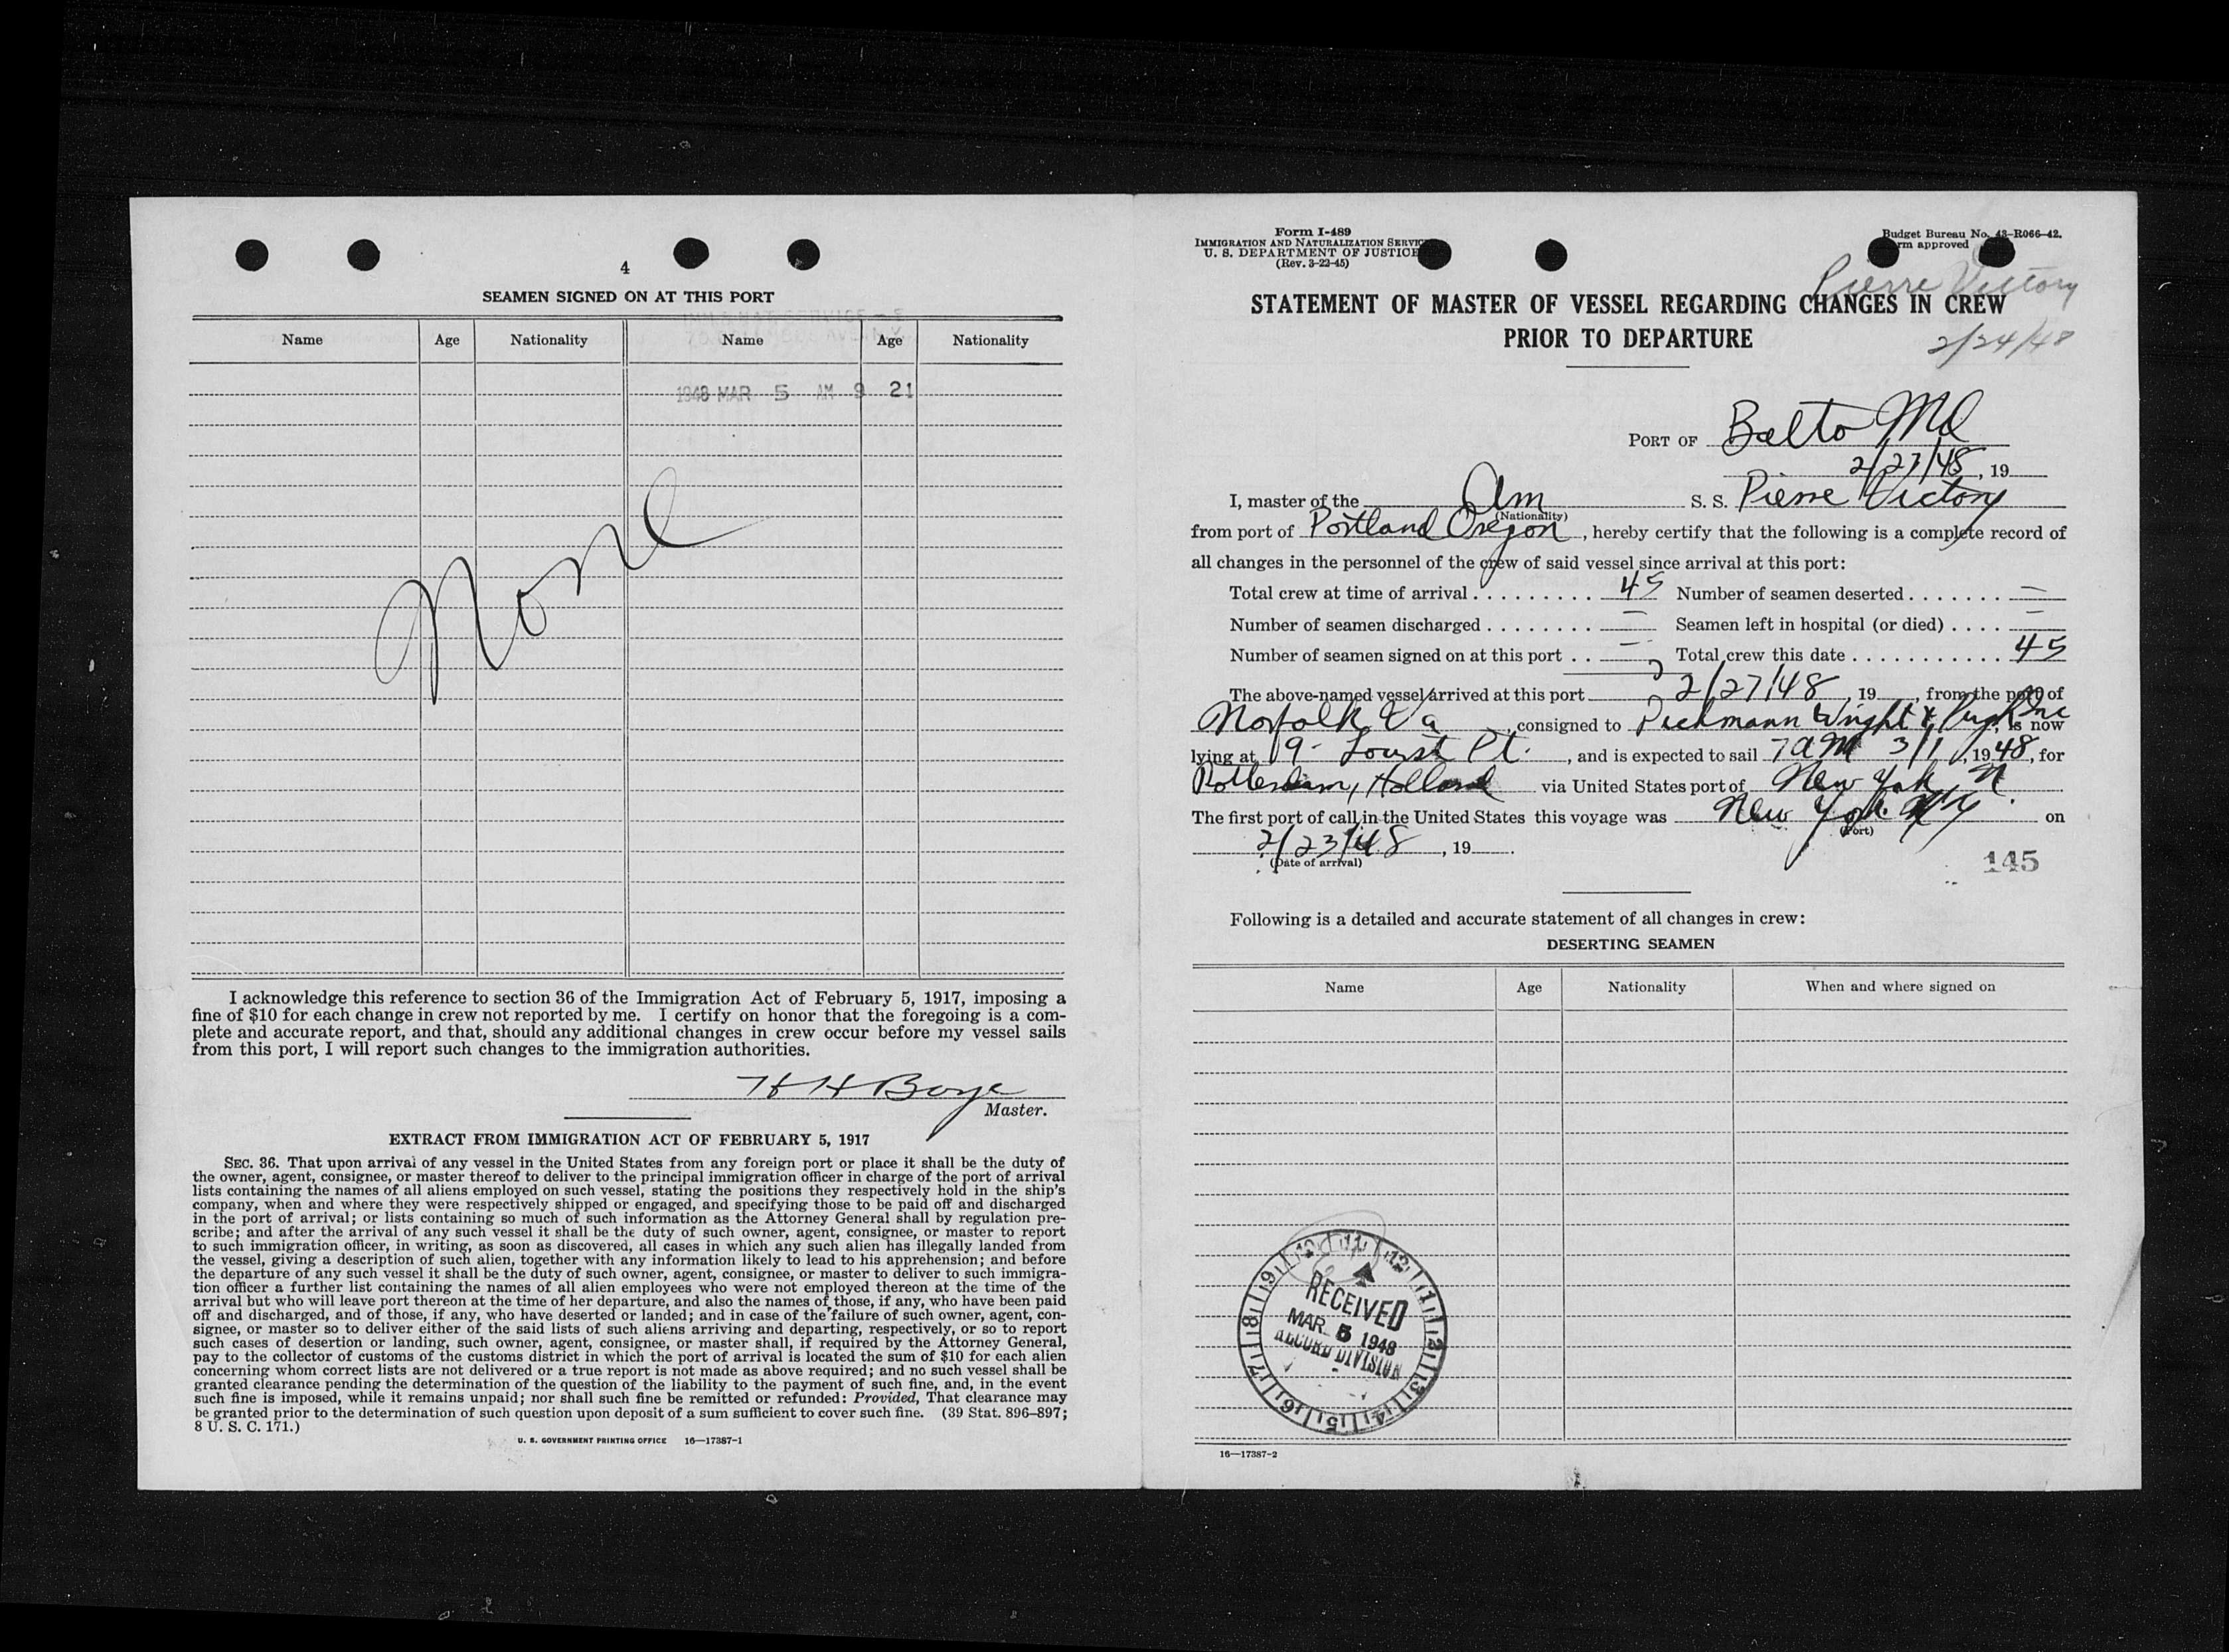 4
SEAMEN SIGNED ON AT THIS PORT
Name Age Nationality Name Age Nationality
1948 MAR 5 AM 9 21
None
I acknowledge this reference to section 36 of the Immigration Act of February 5, 1917, imposing a
fine of $10 for each change in crew not reported by me. I certify on honor that the foregoing is a com-
plete and accurate report, and that, should any additional changes in crew occur before my vessel sails
from this port, I will report such changes to the immigration authorities.
H H Boye
Master.
EXTRACT FROM IMMIGRATION ACT OF FEBRUARY 5, 1917
SEC. 36. That upon arrival of any vessel in the United States from any foreign port or place it shall be the duty of
the owner, agent, consignee, or master thereof to deliver to the principal immigration officer in charge of the port of arrival
lists containing the names of all aliens employed on such vessel, stating the positions they respectively hold in the ship's
company, when and where they were respectively shipped or engaged, and specifying those to be paid off and discharged
in the port of arrival; or lists containing so much of such information as the Attorney General shall by regulation pre-
scribe; and after the arrival of any such vessel it shall be the duty of such owner, agent, consignee, or master to report
to such immigration officer, in writing, as soon as discovered, all cases in which any such alien has illegally landed from
the vessel, giving a description of such alien, together with any information likely to lead to his apprehension; and before
the departure of any such vessel it shall be the duty of such owner, agent, consignee, or master to deliver to such immigra-
tion officer a further list containing the names of all alien employees who were not employed thereon at the time of the
arrival but who will leave port thereon at the time of her departure, and also the names of those, if any, who have been paid
off and discharged, and of those, if any, who have deserted or landed; and in case of the failure of such owner, agent, con-
signee, or master so to deliver either of the said lists of such aliens arriving and departing, respectively, or so to report
such cases of desertion or landing, such owner, agent, consignee, or master shall, if required by the Attorney General,
pay to the collector of customs of the customs district in which the port of arrival is located the sum of $10 for each alien
concerning whom correct lists are not delivered or a true report is not made as above required; and no such vessel shall be
granted clearance pending the determination of the question of the liability to the payment of such fine, and, in the event
such fine is imposed, while it remains unpaid; nor shall such fine be remitted or refunded: Provided, That clearance may
be granted prior to the determination of such question upon deposit of a sum sufficient to cover such fine. (39 Stat. 896–897;
8 U. S. C. 171.)
U. S. GOVERNMENT PRINTING OFFICE 16—17387-1
Form I-489
IMMIGRATION AND NATURALIZATION SERVICE
U. S. DEPARTMENT OF JUSTICE
(Rev. 3-22-45)
Budget Bureau No. 43-R066-42.
rm approved
Pierre Victory
STATEMENT OF MASTER OF VESSEL REGARDING CHANGES IN CREW
PRIOR TO DEPARTURE
2/24/48
PORT OF Balto Md
2/27/48, 19
I, master of the Am S. S. Pierre Victory
(Nationality)
from port of Portland Oregon, hereby certify that the following is a complete record of
all changes in the personnel of the crew of said vessel since arrival at this port:
Total crew at time of arrival . . . . . . . . . 45 Number of seamen deserted . . . . . . . —
Number of seamen discharged . . . . . . . . — Seamen left in hospital (or died) . . . . —
Number of seamen signed on at this port . . — Total crew this date . . . . . . . . . . . 45
The above-named vessel arrived at this port 2/27/48, 19 , from the port of
Norfolk Va, consigned to Wright & Pugh Inc, is now
lying at 9 - Locust Pt., and is expected to sail 7 AM 3/1, 1948, for
Rotterdam, Holland via United States port of New York N
The first port of call in the United States this voyage was New York NY on
(Port)
2/23/48, 19 .
(Date of arrival)
145
Following is a detailed and accurate statement of all changes in crew:
DESERTING SEAMEN
Name Age Nationality When and where signed on
10 11 12 1 2 3 4 5 6 7 8 9
RECEIVED
MAR 5 1948
RECORD DIVISION
16—17387-2